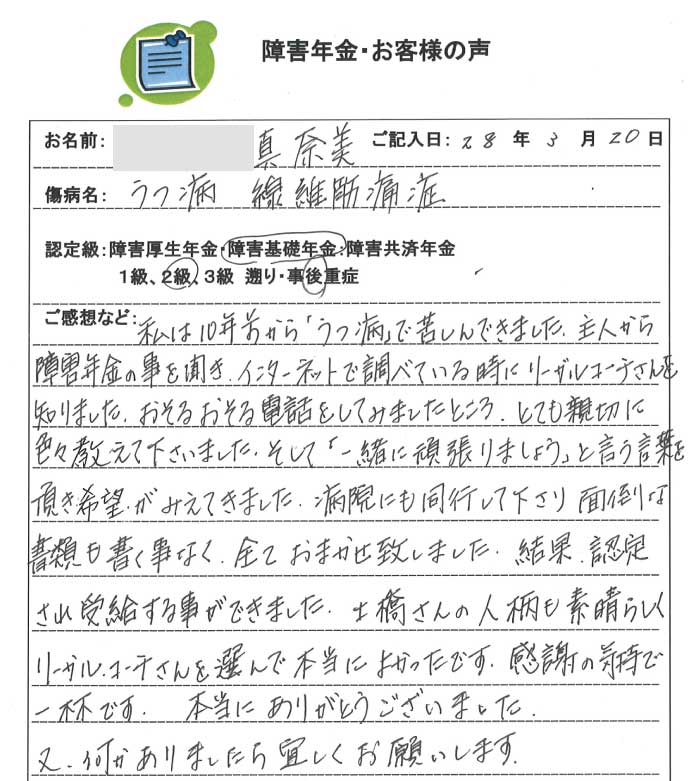 障害年金・お客様の声
お名前: 真奈美 ご記入日: 28 年 3 月 20 日
傷病名: うつ病 線維筋痛症
認定級:障害厚生年金・障害基礎年金・障害共済年金
1級、2級、3級 遡り・事後重症
ご感想など: 私は10年前から「うつ病」で苦しんできました。主人から
障害年金の事を聞き、インターネットで調べている時にリーガルコーチさんを
知りました。おそるおそる電話をしてみましたところ、とても親切に
色々教えて下さいました。そして「一緒に頑張りましょう」と言う言葉を
頂き希望がみえてきました。病院にも同行して下さり面倒な
書類も書く事なく、全ておまかせ致しました。結果、認定
され受給する事ができました。土橋さんの人柄も素晴らしく
リーガル・コーチさんを選んで本当によかったです。感謝の気持で
一杯です。 本当にありがとうございました。
又、何かありましたら宜しくお願いします。